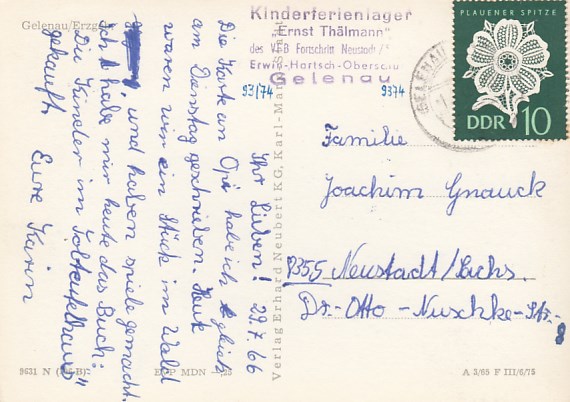 Gelenau/Erzgeb.
Kinderferienlager
"Ernst Thälmann"
des VEB Fortschritt Neustadt/S.
Erwin-Hartsch-Oberschule
Gelenau
93/74
9374
PLAUENER SPITZE
DDR 10
GELENAU
Ihr Lieben! 29.7.66
Die Karte an Opi habe ich gleich
am Dienstag geschrieben. Heut
waren wir ein Stück im Wald
und haben Spiele gemacht.
Ich habe mir heute das Buch:
"Die Kinder im Tolteufelhaus"
gekauft. Eure Karin
Verlag Erhard Neubert KG, Karl-Marx-Stadt
Familie
Joachim Gnauck
8355 Neustadt/Sachs.
Dr.-Otto-Nuschke-Str.
8
9631 N
EVP MDN
A 3/65 F III/6/75